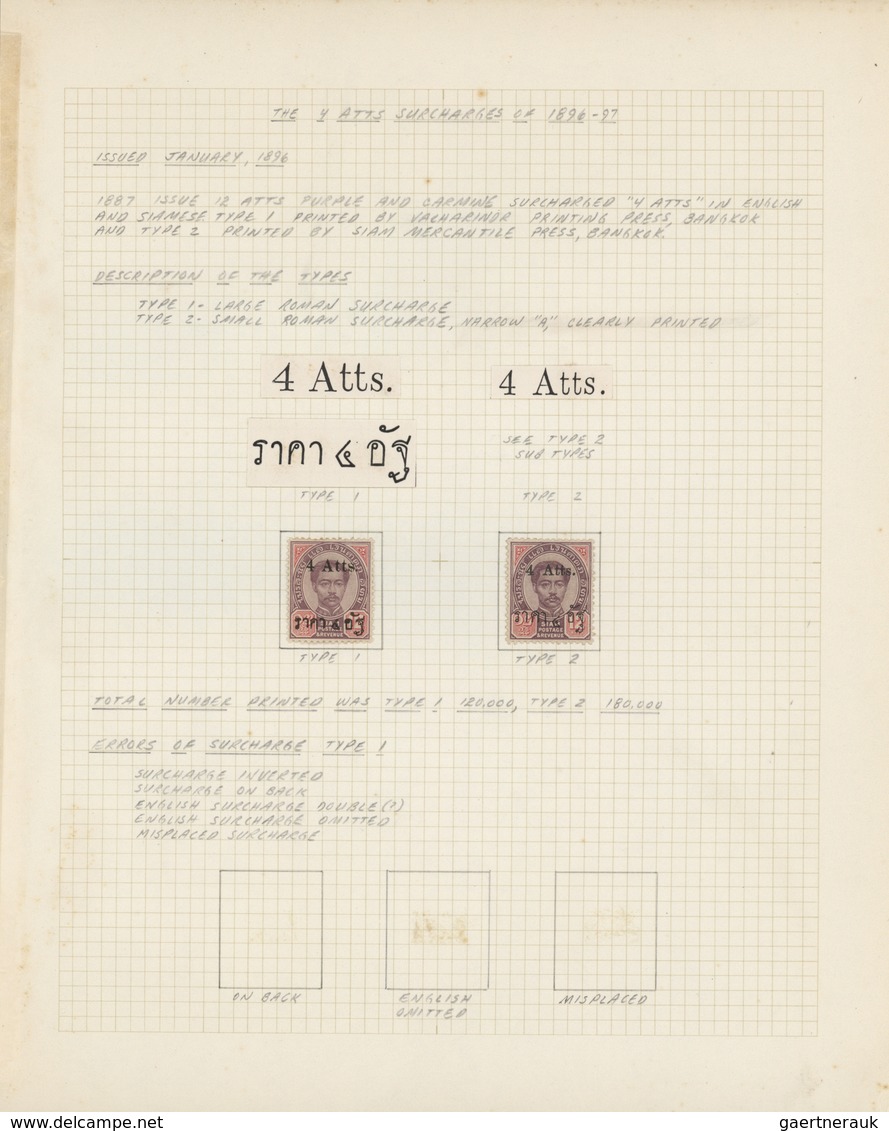 THE 4 ATTS SURCHARGES OF 1896-97
ISSUED JANUARY, 1896
1887 ISSUE 12 ATTS PURPLE AND CARMINE SURCHARGED "4 ATTS" IN ENGLISH
AND SIAMESE TYPE 1 PRINTED BY VACHARINDR PRINTING PRESS, BANGKOK
AND TYPE 2 PRINTED BY SIAM MERCANTILE PRESS, BANGKOK.
DESCRIPTION OF THE TYPES
TYPE 1- LARGE ROMAN SURCHARGE
TYPE 2- SMALL ROMAN SURCHARGE, NARROW "A," CLEARLY PRINTED
4 Atts.
4 Atts.
ราคา ๔ อัฐ
SEE TYPE 2
SUB TYPES
TYPE 1
TYPE 2
4 Atts.
ราคา ๔ อัฐ
SIAM
POSTAGE
&REVENUE
4 Atts.
ราคา ๔ อัฐ
SIAM
POSTAGE
&REVENUE
TYPE 1
TYPE 2
TOTAL NUMBER PRINTED WAS TYPE 1 120.000, TYPE 2 180.000
ERRORS OF SURCHARGE TYPE 1
SURCHARGE INVERTED
SURCHARGE ON BACK
ENGLISH SURCHARGE DOUBLE(?)
ENGLISH SURCHARGE OMITTED
MISPLACED SURCHARGE
ON BACK
ENGLISH
OMITTED
MISPLACED
www.delcampe.net
gaertnerauk